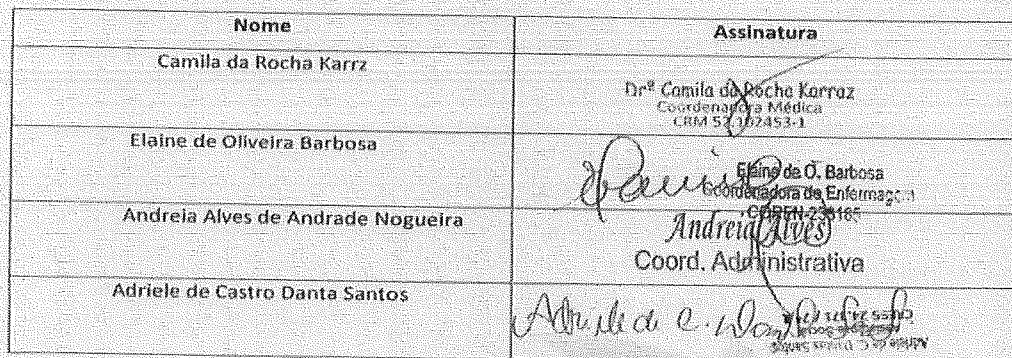 Nome Assinatura
Camila da Rocha Karrz
Drª Camila da Rocha Karraz
Coordenadora Médica
CRM 52 102453-1
Elaine de Oliveira Barbosa
Elaine de O. Barbosa
Coordenadora de Enfermagem
COREN-238165
Andreia Alves de Andrade Nogueira
Andreia Alves
Coord. Administrativa
Adriele de Castro Danta Santos
Adriele de C.
Adriele de C. Dantas Santos